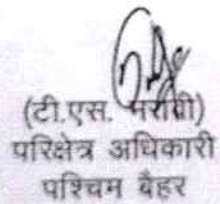 (टी.एस. मरावी)
परिक्षेत्र अधिकारी
पश्चिम बैहर